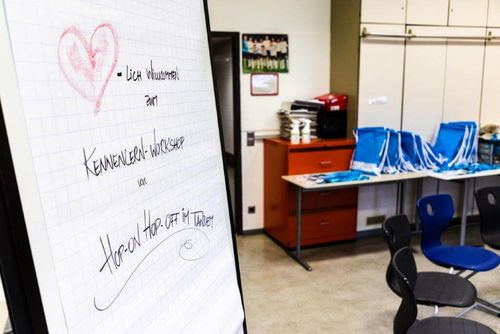 -LICH WILLKOMMEN
ZUM
KENNENLERN-WORKSHOP
von
HOP-ON HOP-OFF IM TANDEM